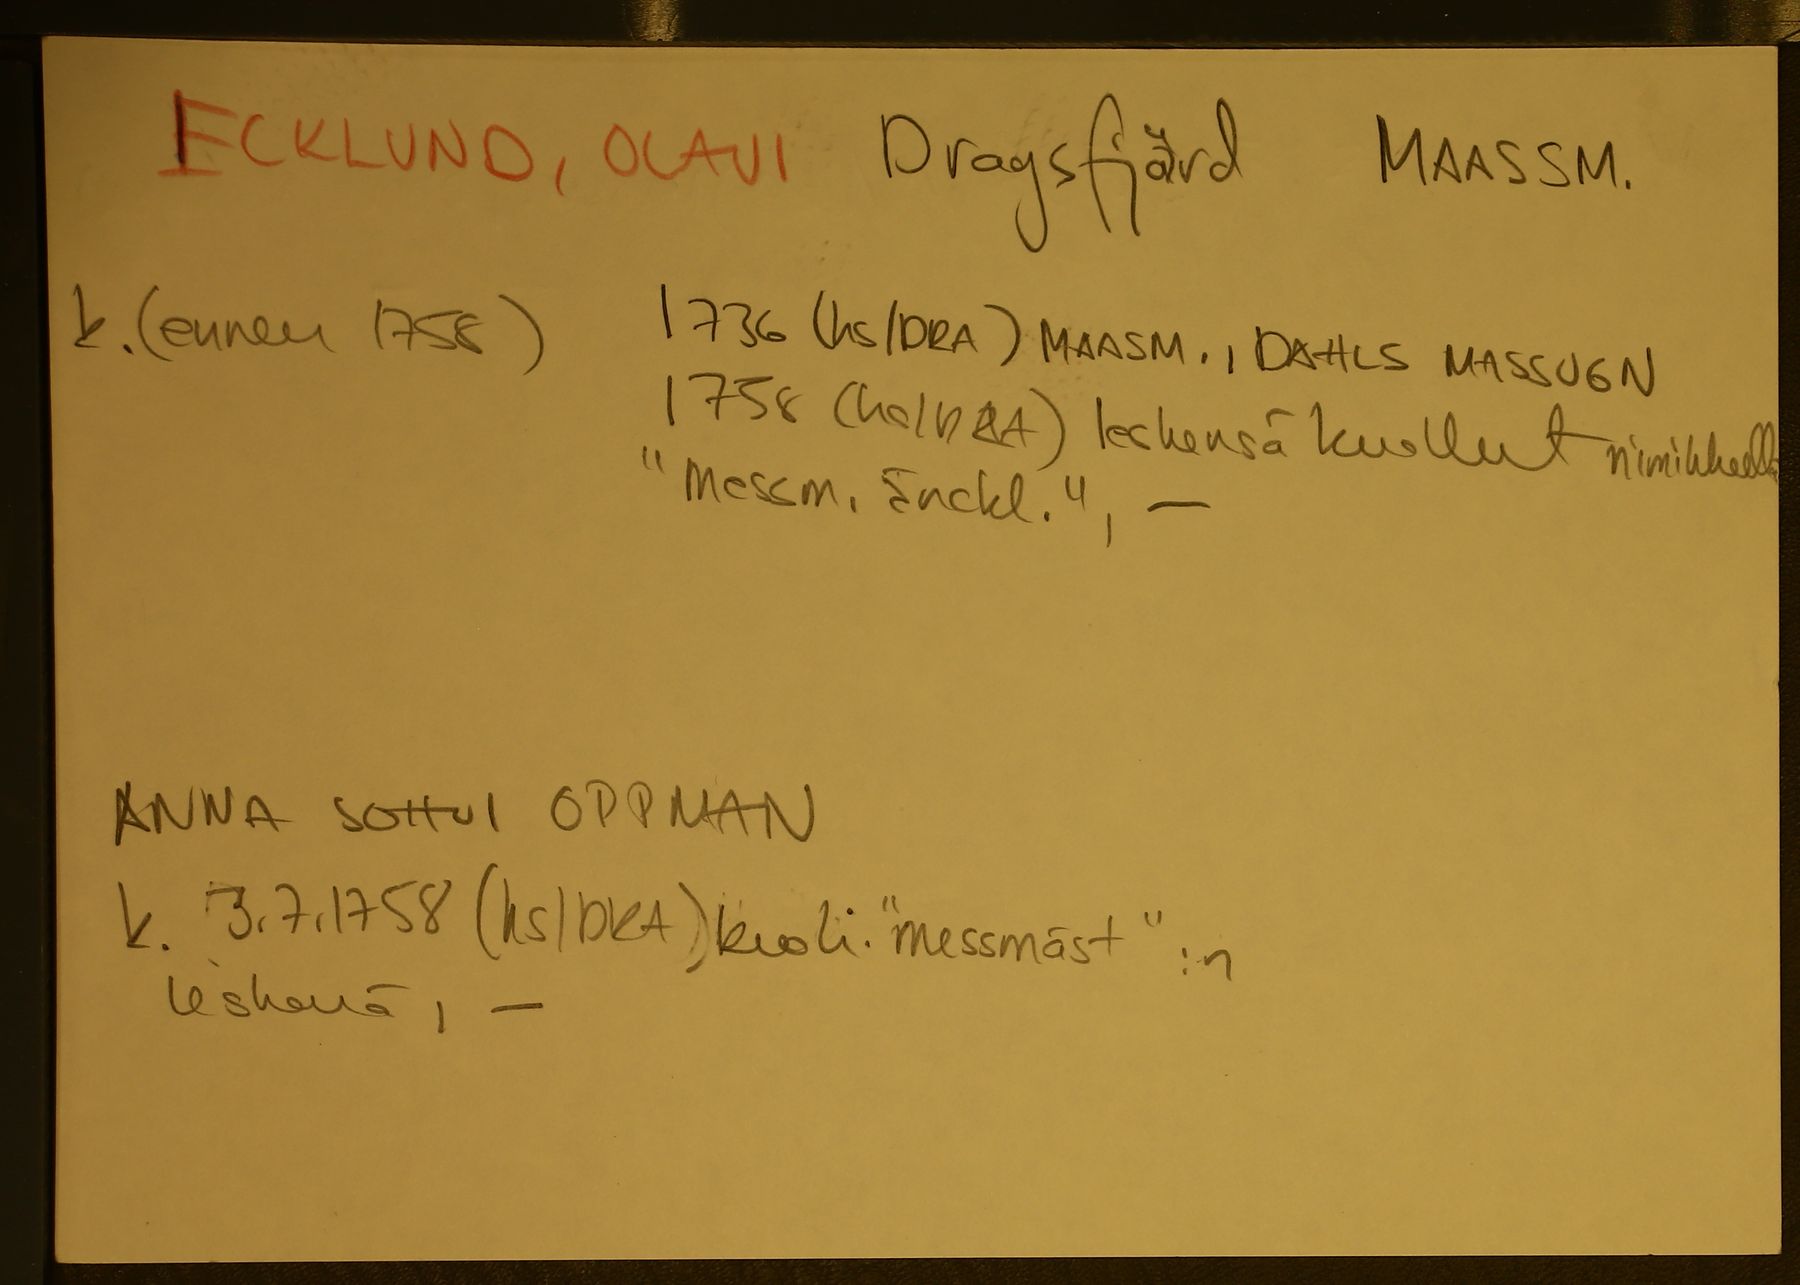 ECKLUND, OLAVI Dragsfjärd MAASSM.
k. (ennen 1758) 1736 (hs/DRA) MAASM., DAHLS MASSUGN
1758 (hs/DRA) leskensä kuollut nimikkeellä
"Messm. Enckl.", —
ANNA SOHVI OPPMAN
k. 3.7.1758 (hs/DRA), kuoli "messmäst":n
leskenä, —